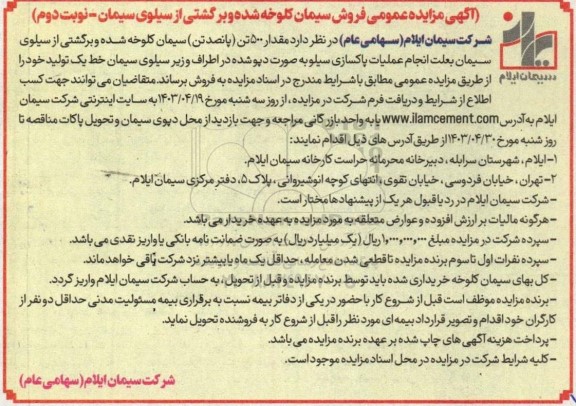 (آگهی مزایده عمومی فروش سیمان کلوخه شده و برگشتی از سیلوی سیمان - نوبت دوم)
شرکت سیمان ایلام (سهامی عام) در نظر دارد مقدار ۵۰۰ تن (پانصد تن) سیمان کلوخه شده و برگشتی از سیلوی
سیمان بعلت انجام عملیات پاکسازی سیلو به صورت دپو شده در اطراف و زیر سیلوی سیمان خط یک تولید خود را
از طریق مزایده عمومی مطابق با شرایط مندرج در اسناد مزایده به فروش برساند. متقاضیان می توانند جهت کسب
اطلاع از شرایط و دریافت فرم شرکت در مزایده، از روز سه شنبه مورخ ۱۴۰۳/۰۴/۱۹ به سایت اینترنتی شرکت سیمان
سیمان ایلام
ایلام به آدرس www.ilamcement.com یا به واحد بازرگانی مراجعه و جهت بازدید از محل دپوی سیمان و تحویل پاکات مناقصه تا
روز شنبه مورخ ۱۴۰۳/۰۴/۳۰ از طریق آدرس های ذیل اقدام نمایند:
۱- ایلام، شهرستان سرابله، دبیرخانه محرمانه حراست کارخانه سیمان ایلام.
۲- تهران، خیابان فردوسی، خیابان تقوی، انتهای کوچه انوشیروانی، پلاک ۵، دفتر مرکزی سیمان ایلام.
- شرکت سیمان ایلام در رد یا قبول هر یک از پیشنهادها مختار است.
- هرگونه مالیات بر ارزش افزوده و عوارض متعلقه به مورد مزایده به عهده خریدار می باشد.
- سپرده شرکت در مزایده مبلغ ۱,۰۰۰,۰۰۰,۰۰۰ ریال (یک میلیارد ریال) به صورت ضمانت نامه بانکی یا واریز نقدی می باشد.
- سپرده نفرات اول تا سوم برنده مزایده تا قطعی شدن معامله، حداقل یک ماه یا بیشتر نزد شرکت باقی خواهد ماند.
- کل بهای سیمان کلوخه خریداری شده باید توسط برنده مزایده و قبل از تحویل، به حساب شرکت سیمان ایلام واریز گردد.
- برنده مزایده موظف است قبل از شروع کار با حضور در یکی از دفاتر بیمه نسبت به برقراری بیمه مسئولیت مدنی حداقل دو نفر از
کارگران خود اقدام و تصویر قرارداد بیمه ای مورد نظر را قبل از شروع کار به فروشنده تحویل نماید.
- پرداخت هزینه آگهی های چاپ شده بر عهده برنده مزایده می باشد.
- کلیه شرایط شرکت در مزایده در محل اسناد مزایده موجود است.
شرکت سیمان ایلام (سهامی عام)